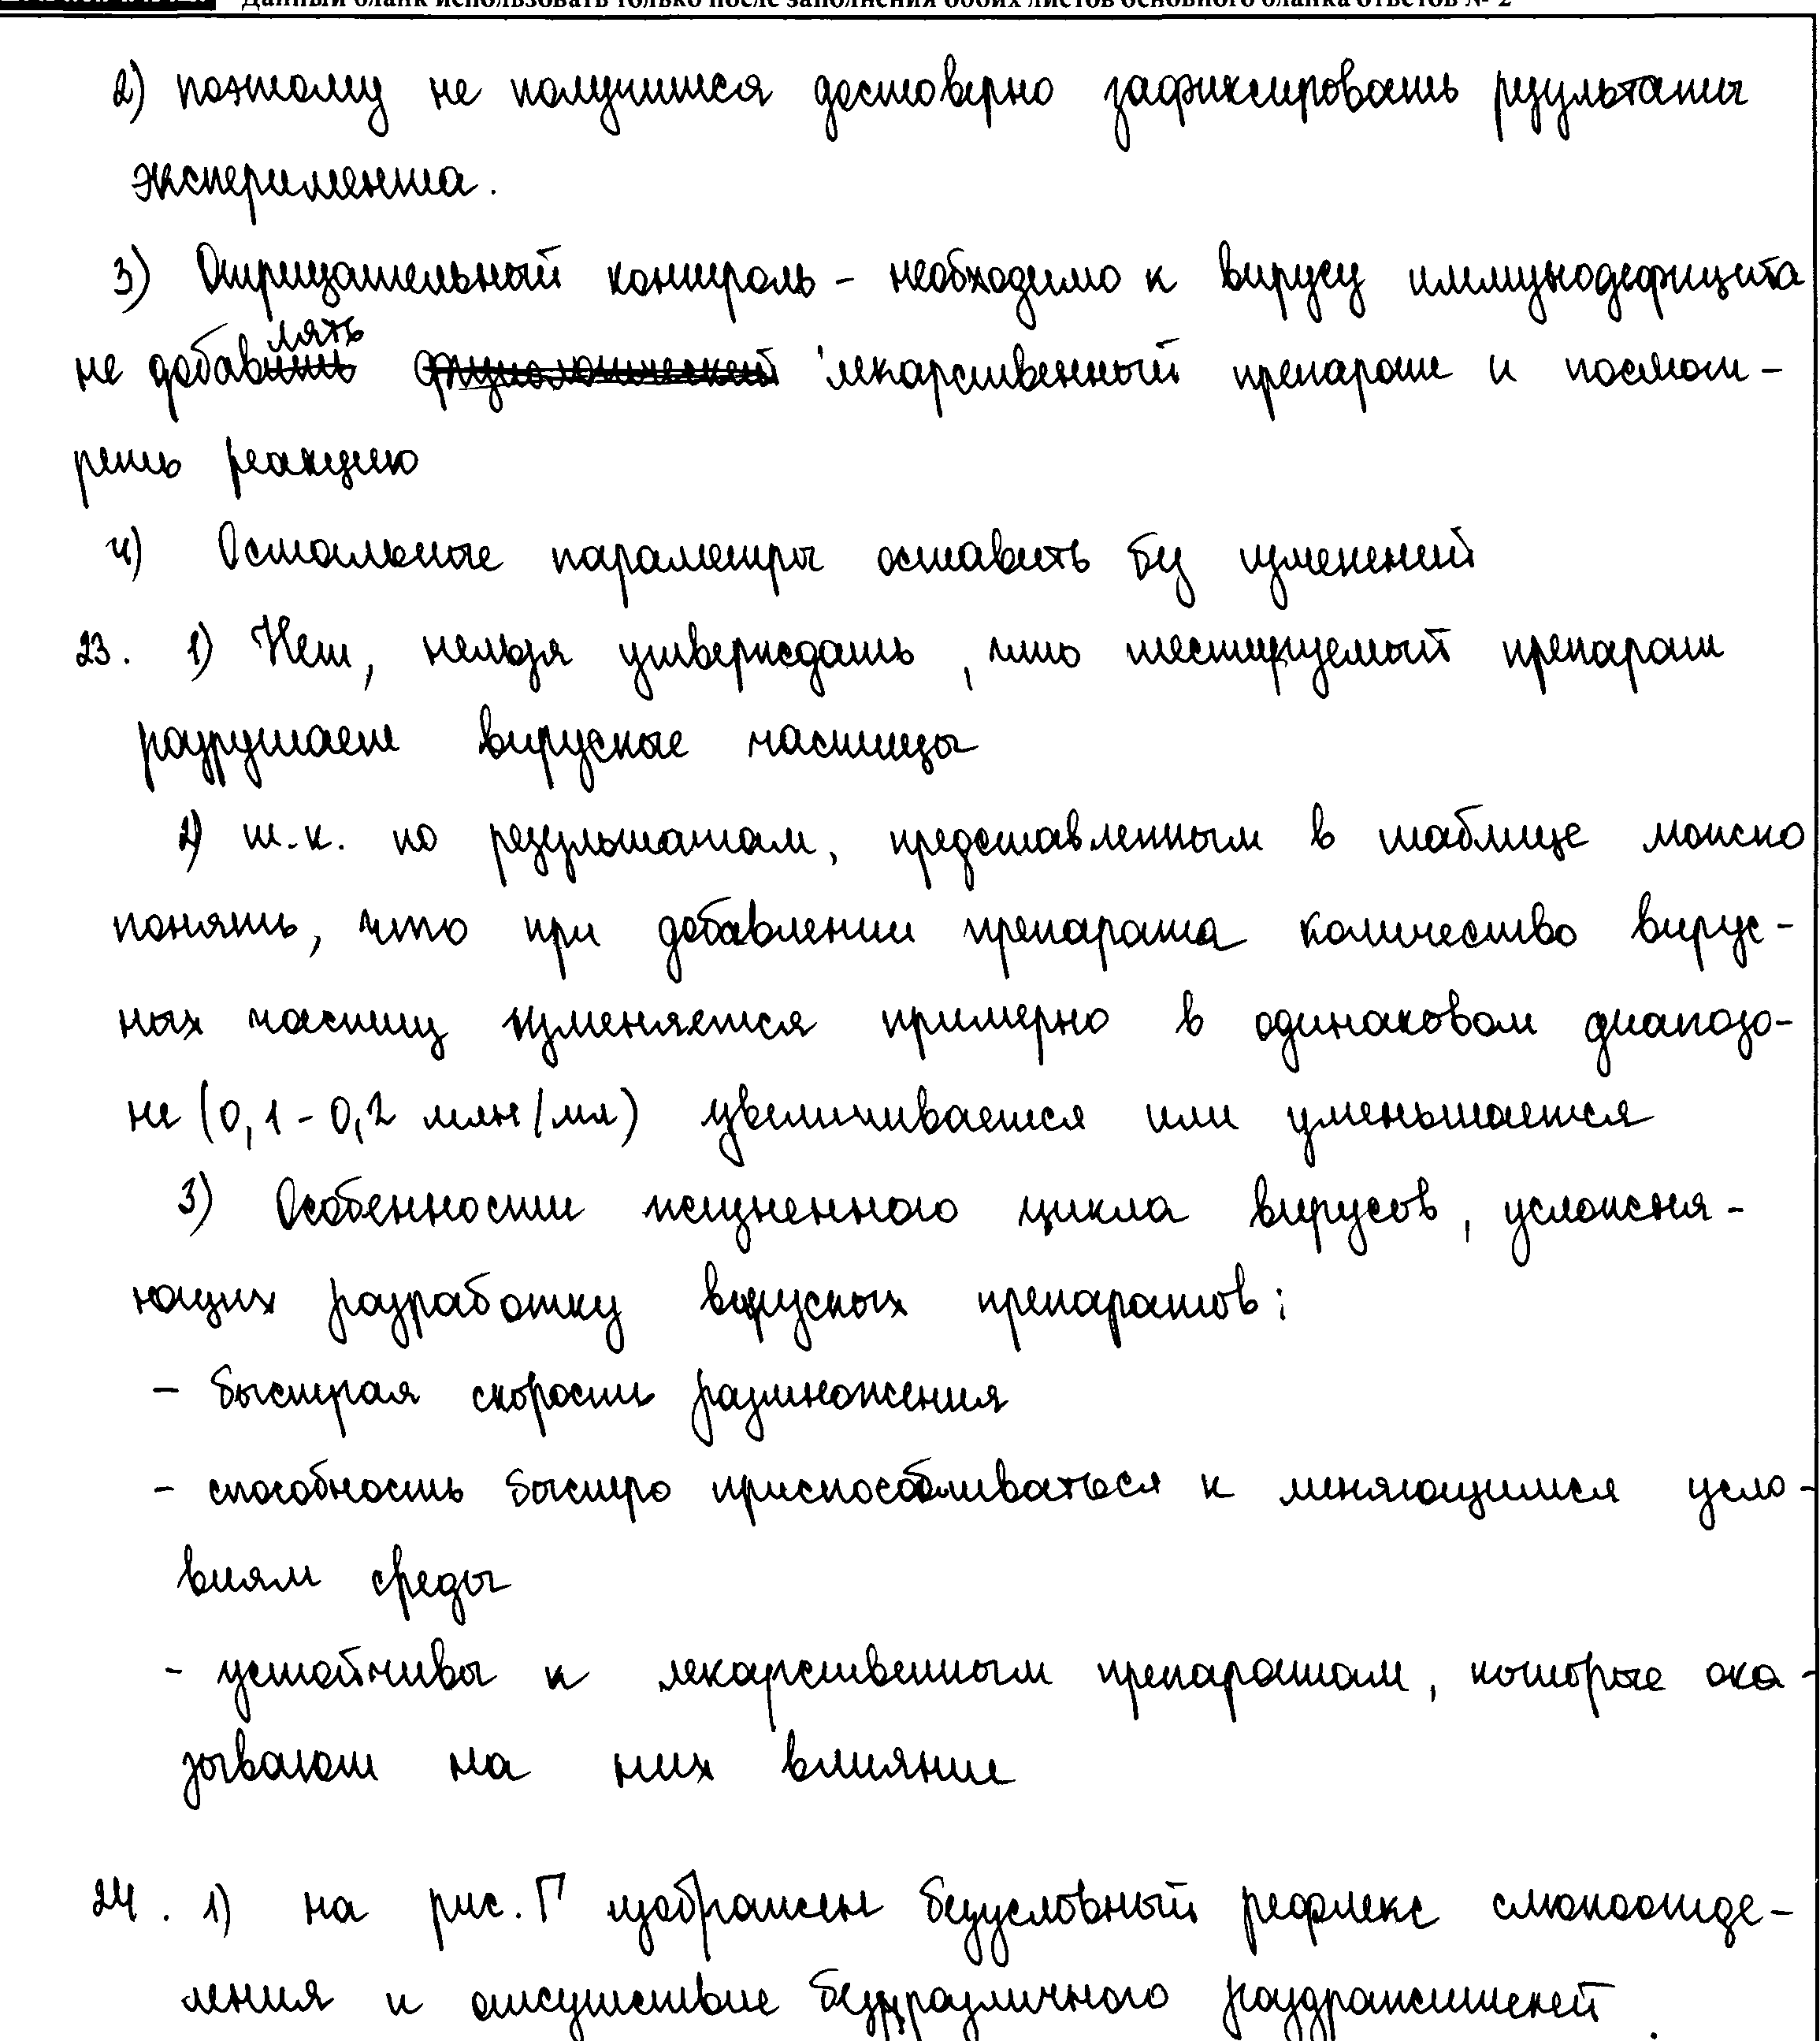 Данный бланк использовать только после заполнения обоих листов основного бланка ответов № 2
2) поэтому не получится достоверно зафиксировать результаты
эксперимента.
3) Отрицательный контроль - необходимо к вирусу иммунодефицита
лять
не добавить физиологический лекарственный препарат и посмот-
реть реакцию
4) Остальные параметры оставить без изменений
23. 1) Нет, нельзя утверждать, что тестируемый препарат
разрушает вирусные частицы
2) т.к. по результатам, представленным в таблице можно
понять, что при добавлении препарата количество вирус-
ных частиц изменяется примерно в одинаковом диапозо-
не (0,1 - 0,2 млн/мл) увеличивается или уменьшается
3) Особенности жизненного цикла вирусов, усложня-
ющих разработку вирусных препаратов:
- быстрая скорость размножения
- способность быстро приспосабливаться к меняющимся усло-
виям среды
- устойчивы к лекарственным препаратам, которые ока-
зывают на них влияние
24. 1) на рис. Г изображен безусловный рефлекс слюноотде-
ления и отсутствие безразличного раздражителей